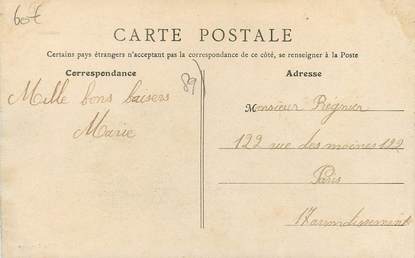 60€
CARTE POSTALE
Certains pays étrangers n'acceptant pas la correspondance de ce côté, se renseigner à la Poste
Correspondance
89
Adresse
Mille bons baisers
Marie
Monsieur Régnier
122 rue des moines 122
Paris
17 arrondissement